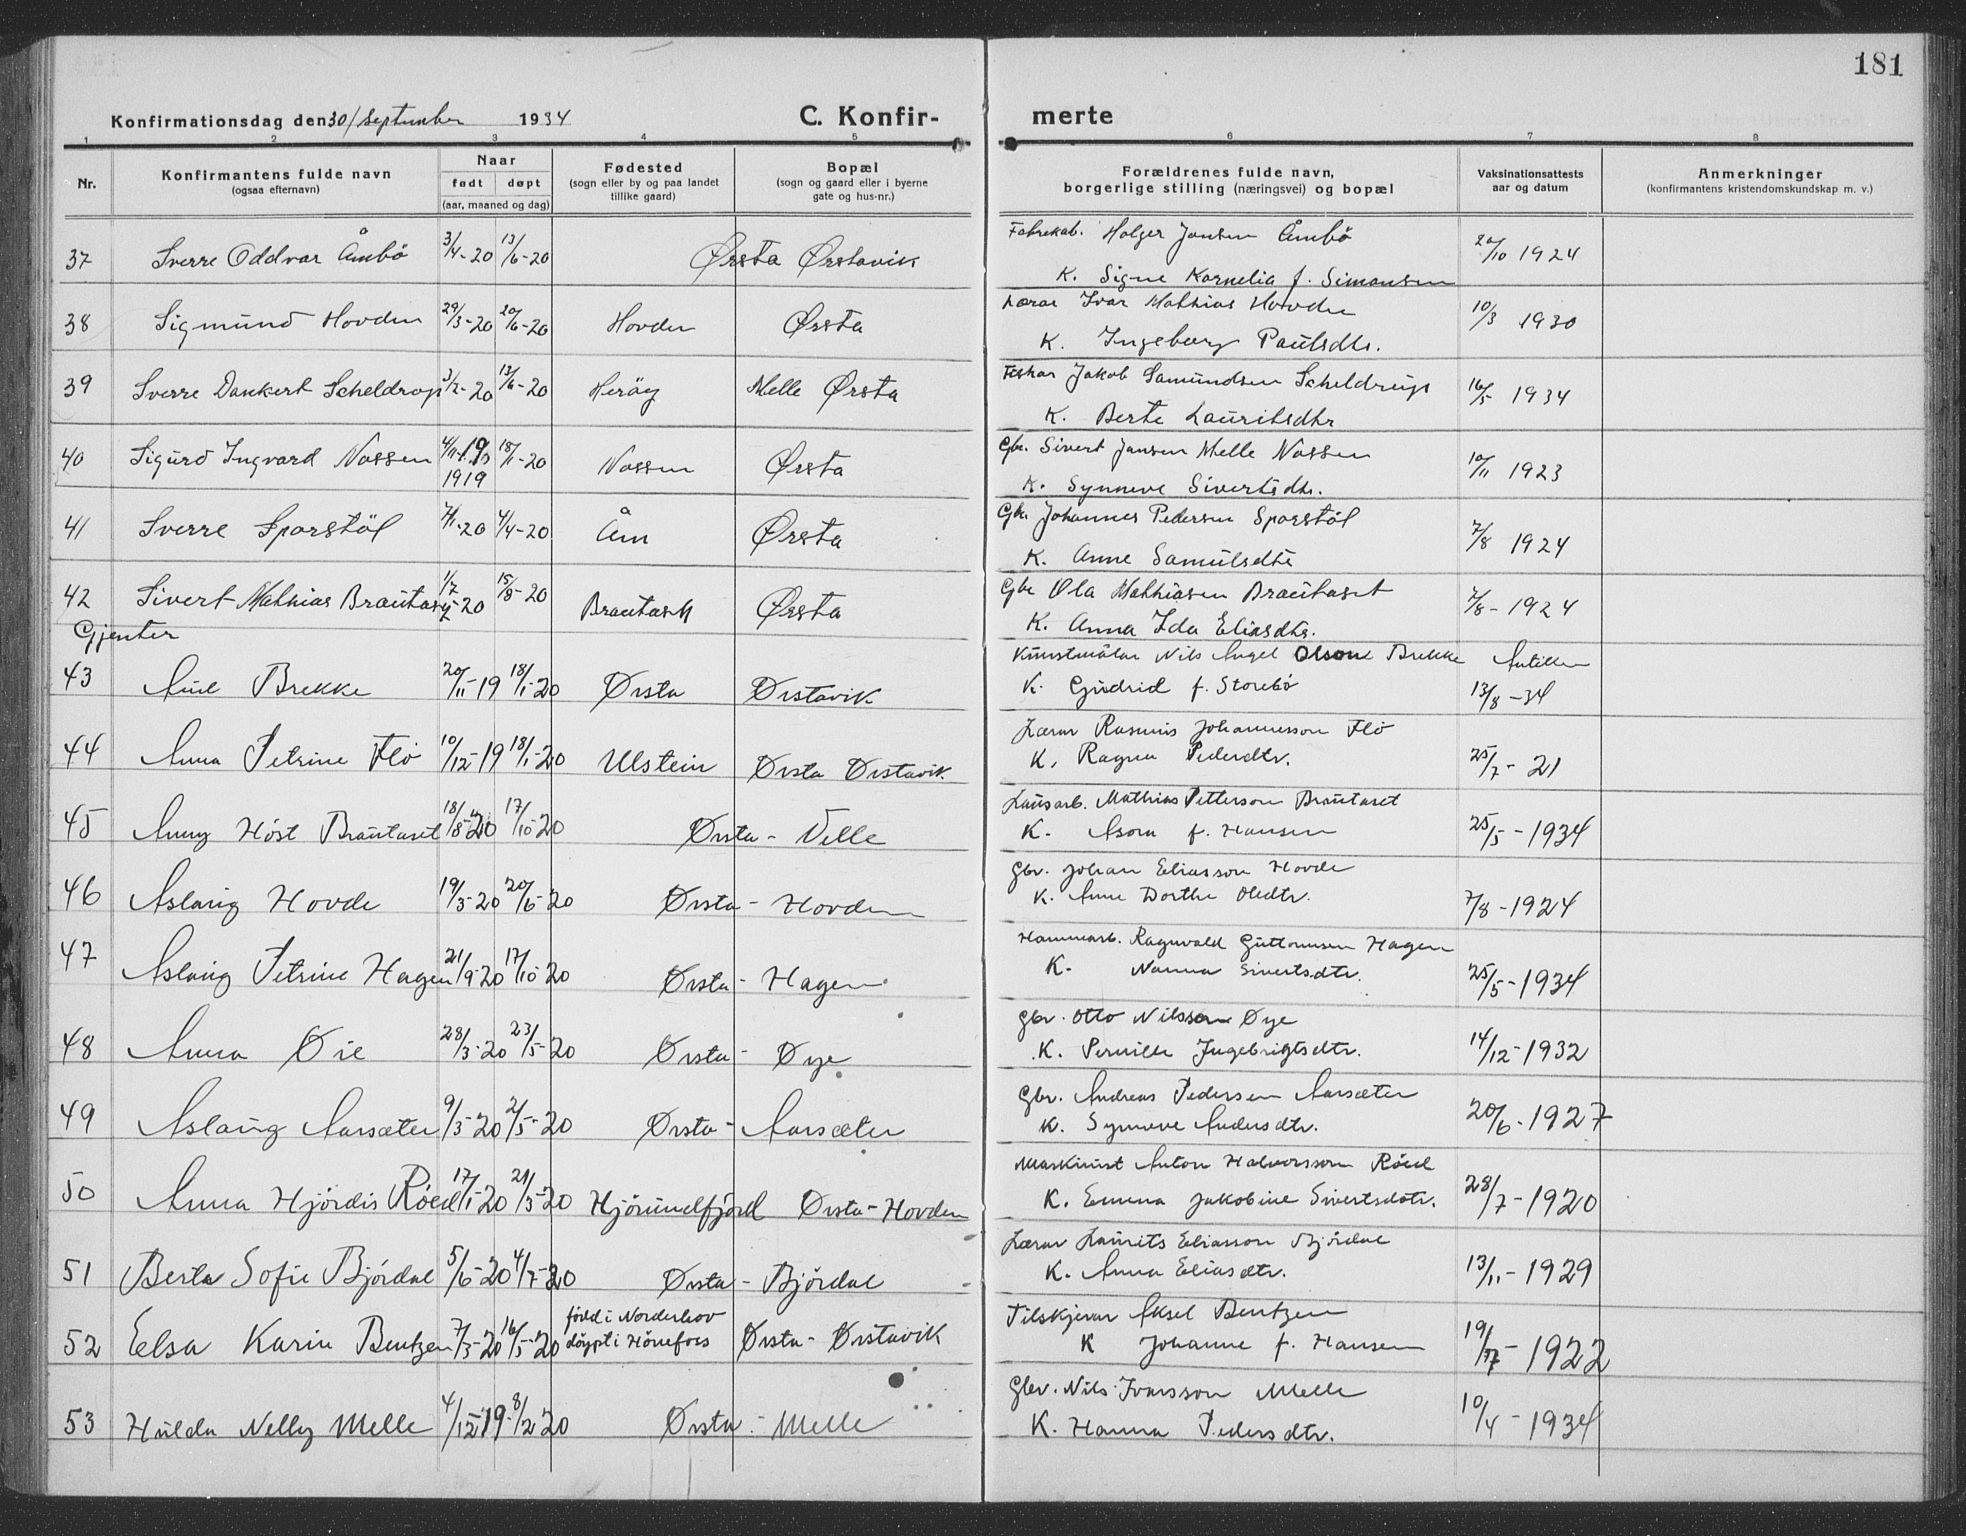 181
Konfirmationsdag den 30/september 1934 C. Konfirmerte
1 2 3 4 5 6 7 8
Nr. Konfirmantens fulde navn (ogsaa efternavn) Naar født døpt (aar, maaned og dag) Fødested (sogn eller by og paa landet tillike gaard) Bopæl (sogn og gaard eller i byerne gate og hus-nr.) Forældrenes fulde navn, borgerlige stilling (næringsvei) og bopæl Vaksinationsattests aar og datum Anmerkninger (konfirmantens kristendomskundskap m. v.)
37 Sverre Oddvar Åmbö 3/4-20 13/6-20 Ørsta Ørstavik Fabrikab. Holger Jansen Åmbö 20/10 1924
K. Signe Kornelia f. Simonsen
38 Sigmund Hovden 29/3-20 20/6-20 Hovden Ørsta Lærar Ivar Mathias Hovden 10/3 1930
K. Ingeborg Paulsdtr.
39 Sverre Dankert Scheldrop 3/2-20 13/6-20 Herøy Melle Ørsta Fiskar Jakob Samundsen Scheldrup 16/5 1934
K. Berte Lauritsdtr
40 Sigurd Ingvard Nossen 4/11 1919 18/1-20 Nossen Ørsta Gbr. Sivert Jansen Melle Nossen 10/11 1923
K. Synneve Sivertsdtr.
41 Sverre Sporstöl 7/1-20 4/4-20 Åm Ørsta Gbr. Johannes Pedersen Sporstöl 7/8 1924
K. Anne Samulsdtr
42 Sivert Mathias Brautaset 1/7-20 15/8-20 Brautaset Ørsta Gbr Ola Mathiasen Brautaset 7/8-1924
K. Anna Ida Eliasdtr.
Gjenter
43 Aud Brekke 20/11-19 18/1-20 Ørsta Ørstavik Kunstmålar Nils Angel Olsone Brekke
K. Gudrid f. Storebö 13/8-34
44 Anna Petrine Flö 10/12-19 18/1-20 Ulstein Ørsta Ørstavik Lærar Rasmus Johannesson Flö
K. Ragna Pedersdtr. 25/7-21
45 Anny Höst Brautaset 18/8-20 17/10-20 Ørsta - Velle Lausarb. Mathias Petterson Brautaset
K. Asora f. Hansen 25/5-1934
46 Aslaug Hovde 19/3-20 20/6-20 Ørsta - Hovden Gbr. Johan Eliasson Hovde
K. Anne Dorthe Oledtr. 7/8-1924
47 Aslaug Petrine Hagen 21/9-20 17/10-20 Ørsta - Hagen Hammarb. Ragnvald Guttormsen Hagen
K. Nanna Sivertsdtr. 25/5-1934
48 Anna Øie 28/3-20 23/5-20 Ørsta - Øye Gbr. Otto Nilssone Øye
K. Pernille Ingebrigtsdtr. 14/12-1932
49 Aslaug Aarsæter 9/3-20 2/5-20 Ørsta - Aarsæter Gbr. Andreas Pedersen Aarsæter
K. Synneve Andersdtr. 20/6-1927
50 Anna Hjördis Röed 17/1-20 21/3-20 Hjörundfjörd Ørsta-Hovden Maskinist Anton Halvorsson Röed
K. Emma Jakobine Sivertsdotr. 28/7-1920
51 Berta Sofie Björdal 5/6-20 4/7-20 Ørsta - Björdal Lærar Laurits Eliasson Björdal
K. Anna Eliasdtr. 13/11-1929
52 Eelsa Karin Bentzen 7/3-20 16/5-20 född i Norderhov döypt i Hönefoss Ørsta - Ørstavik Tilskjerar Aksel Bentzen
K Johanne f. Hansen 19/ - 1922
53 Hulda Nelly Melle 4/12-19 8/2-20 Ørsta - Melle Gbr. Nils Ivarsson Melle
K. Hanna Pedersdtr. 10/4-1934